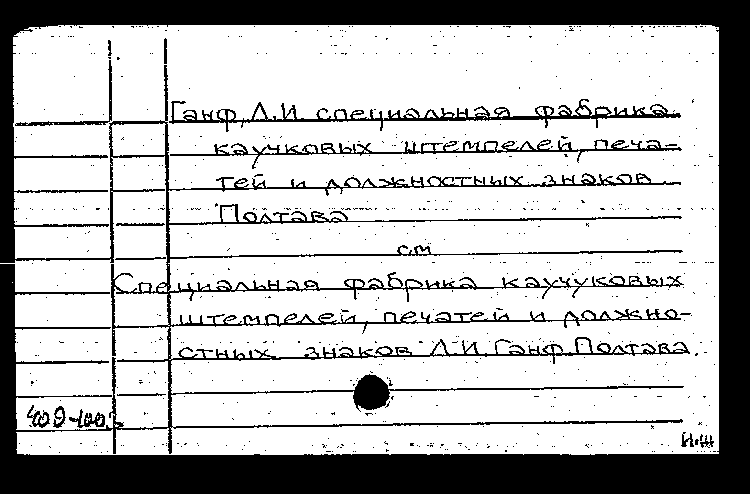 Ганф, Л.И. специальная фабрика
каучковых штемпелей, печа-
тей и должностных знаков
Полтава
см
Специальная фабрика каучуковых
штемпелей, печатей и должно-
стных знаков Л.И. Ганф. Полтава.